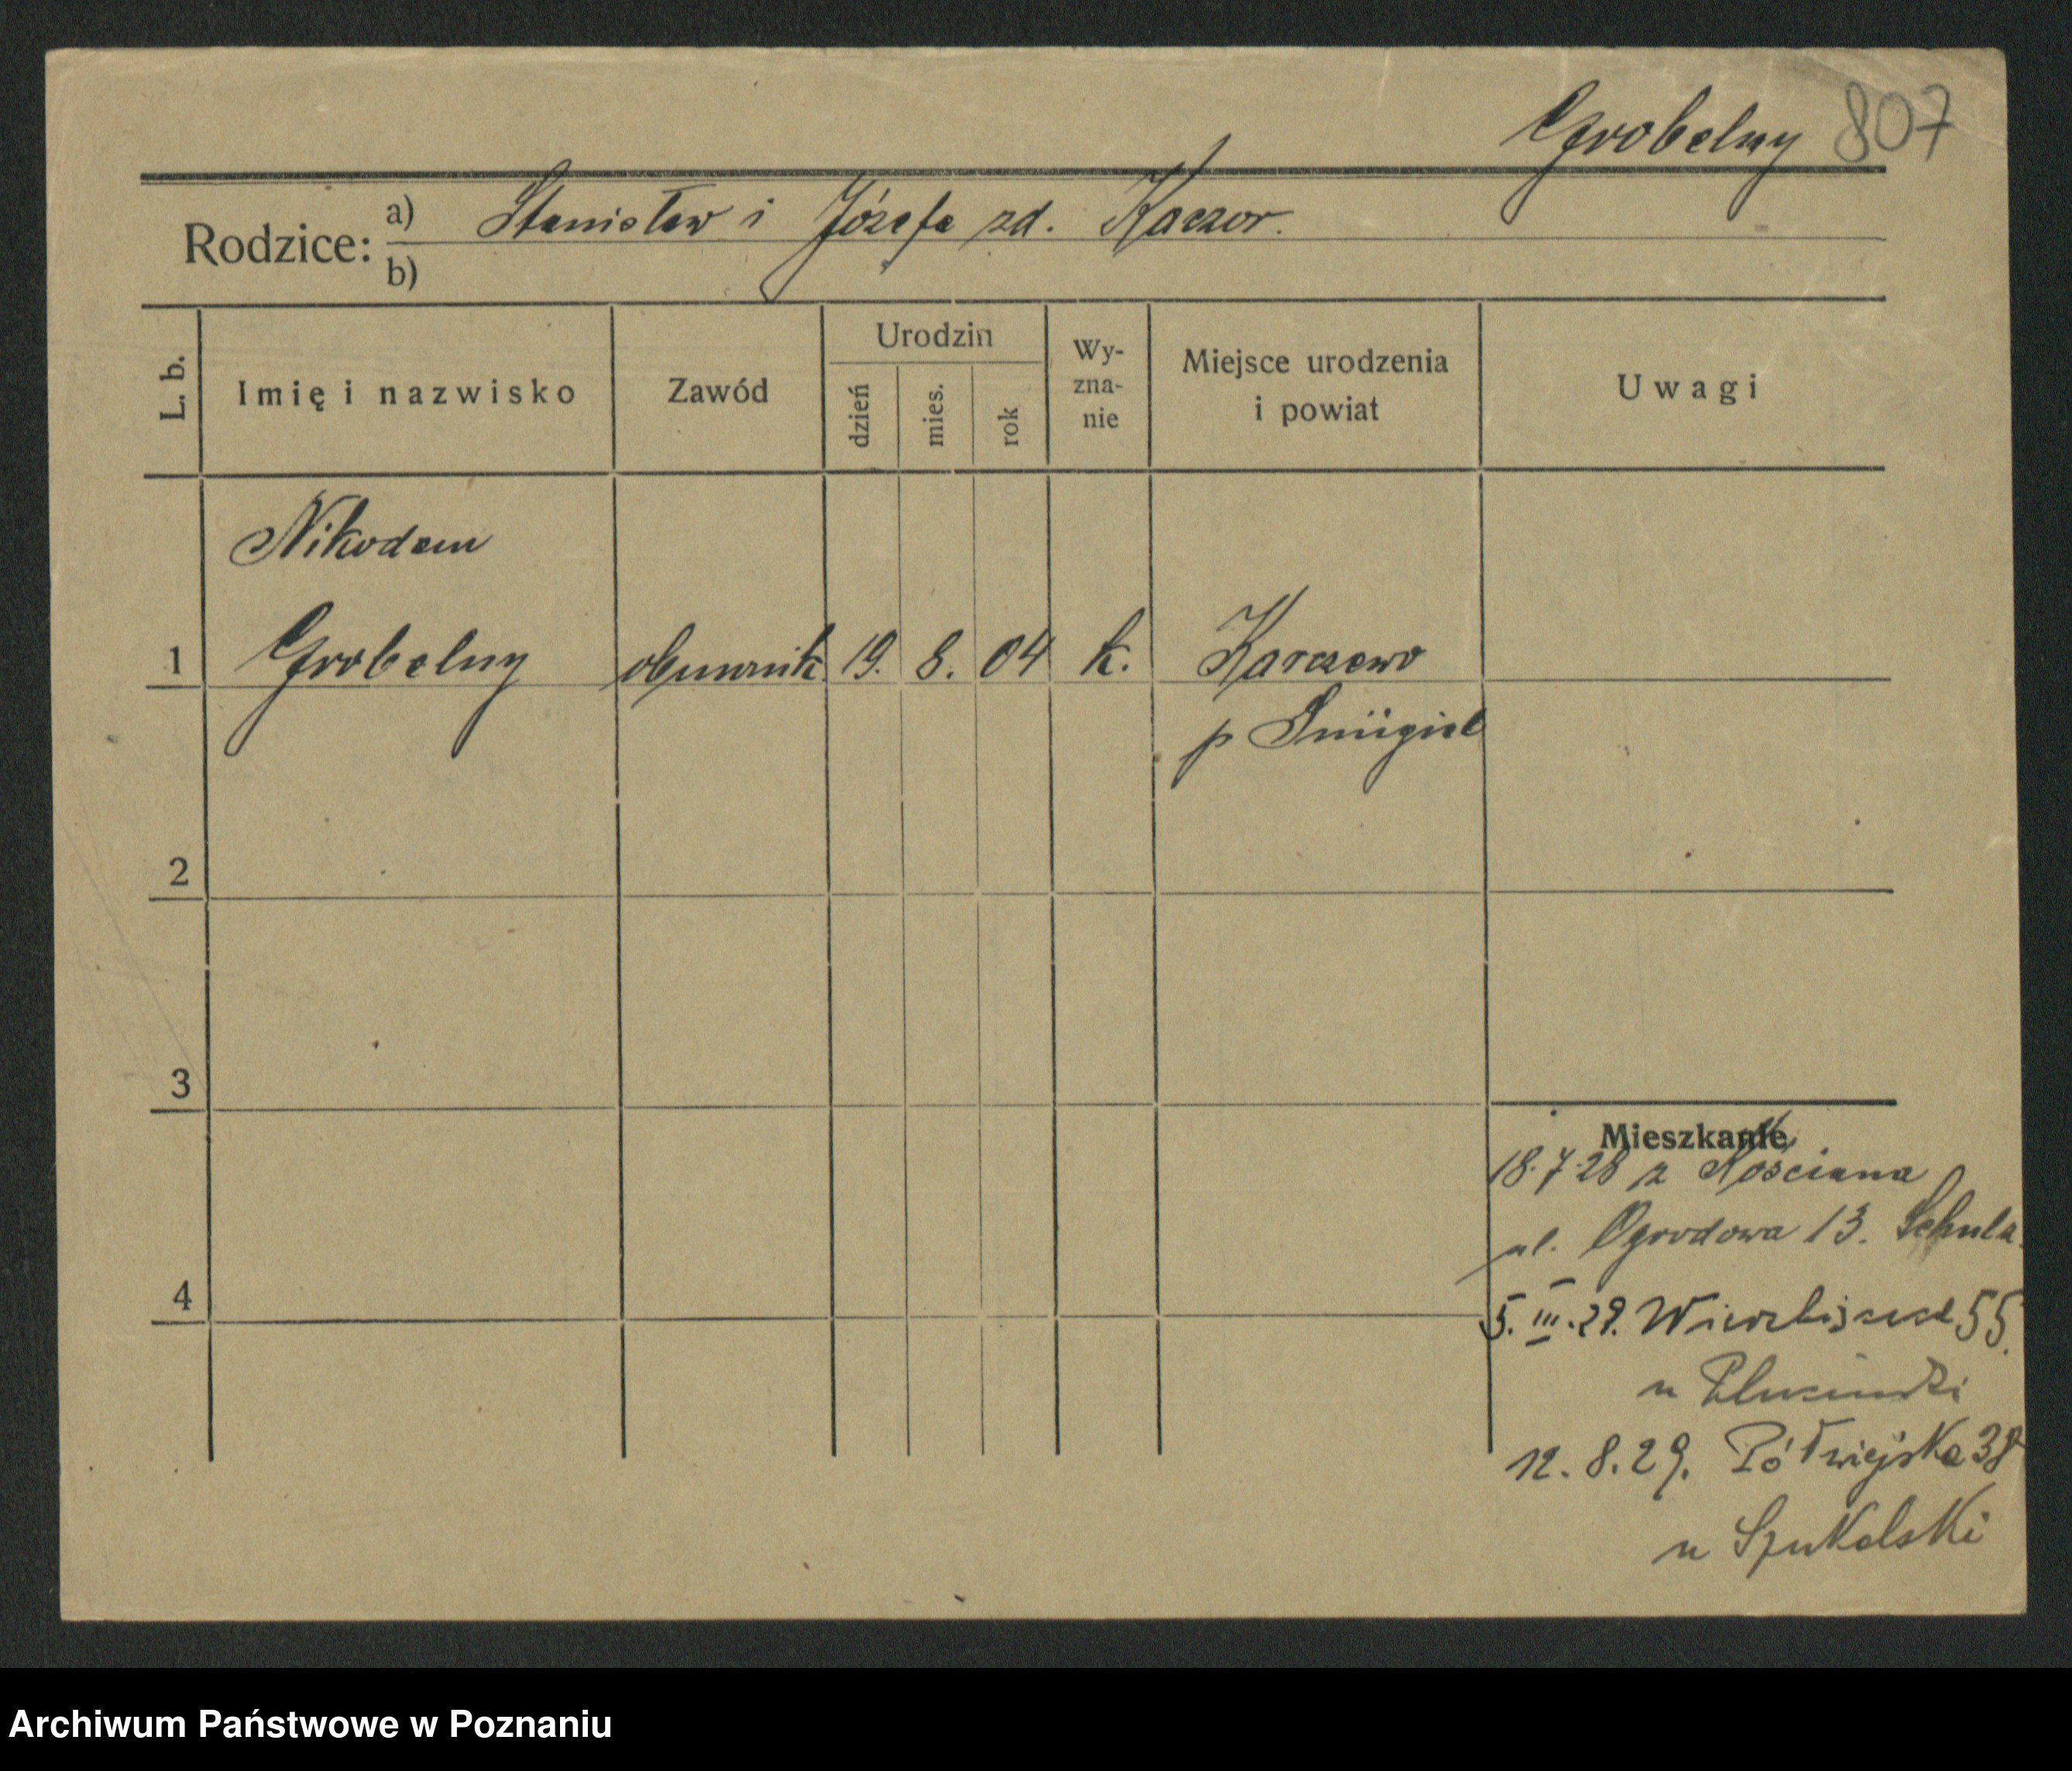 Grobelny 807
Rodzice: a) Stanisław i Józefa zd. Kaczor.
b)
L. b.
Imię i nazwisko
Zawód
Urodzin
dzień
mies.
rok
Wy-
zna-
nie
Miejsce urodzenia
i powiat
Uwagi
Nikodem
1 Grobelny obuwnik 19. 8. 04 k. Karczewo
p Śmigiel
2
3
4
Mieszkanie
18.7.28 z Kościana
ul. Ogrodowa 13. Schula
5. III. 29. 55.
u
12. 8. 29. Półwiejska 38
u Szukalski
Archiwum Państwowe w Poznaniu